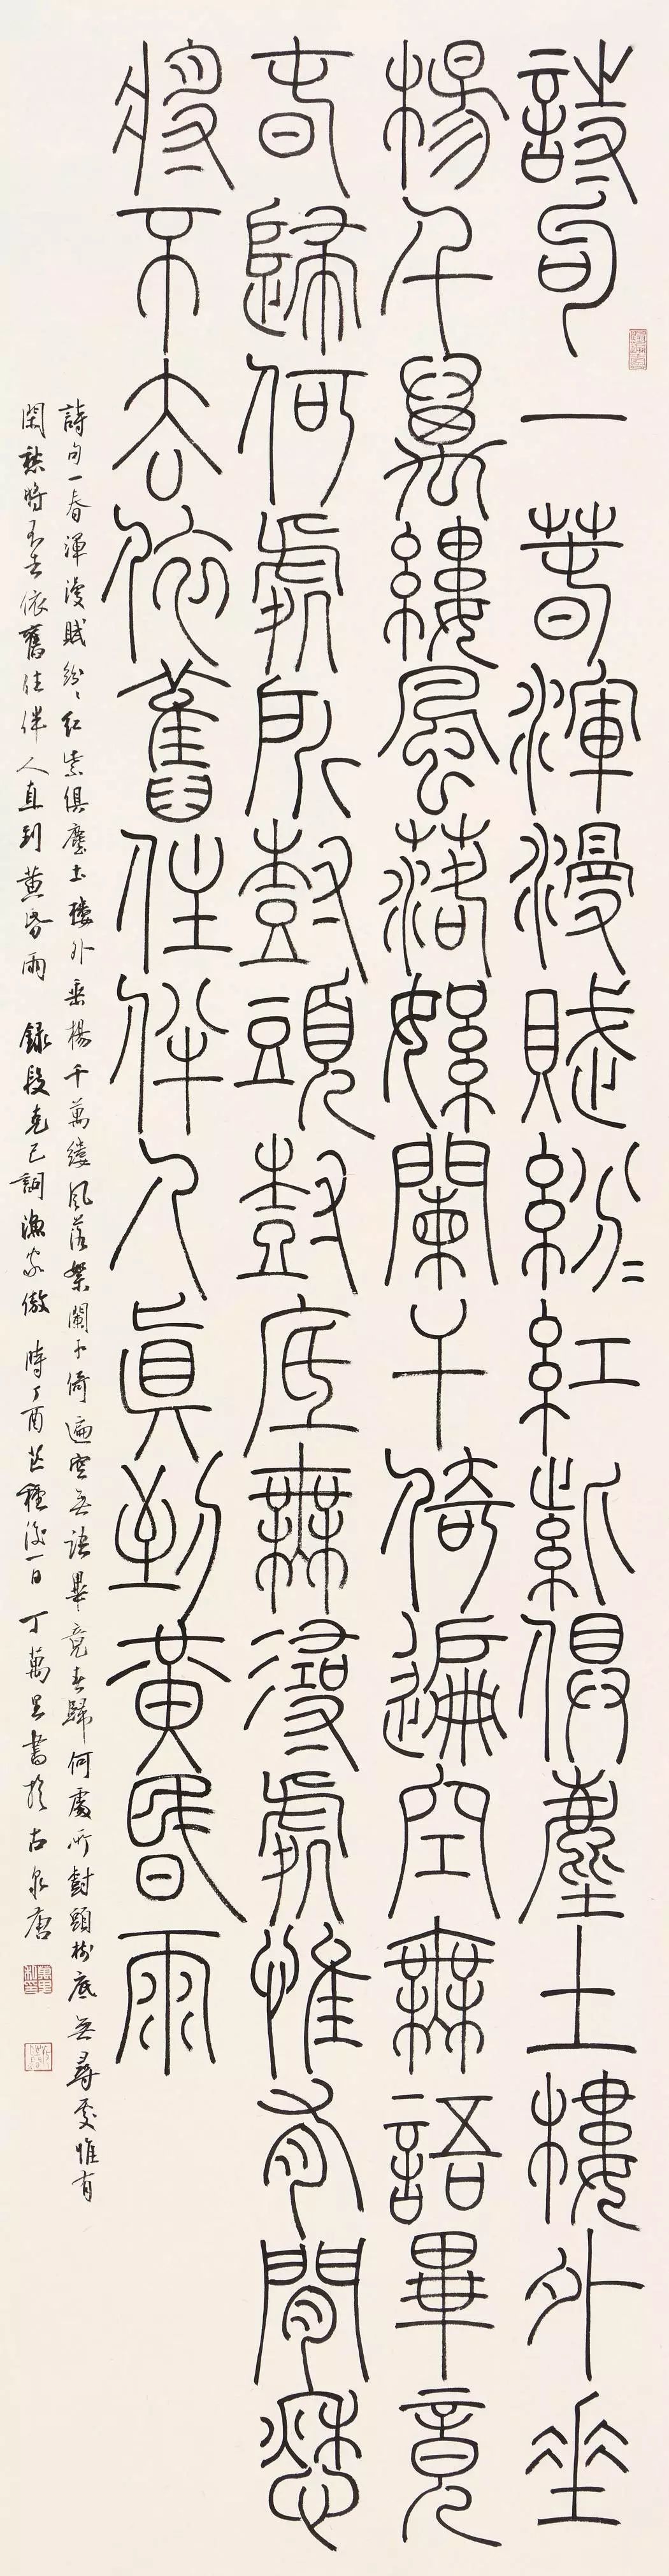 詩句一春渾漫賦紛〻紅紫俱塵土樓外垂
楊千萬縷風落絮闌干倚遍空無語畢竟
春歸何處所尌頭尌底無尋處惟有閒愁
將不去依舊住伴人眞到黃昏雨
詩句一春渾漫賦紛〻紅紫俱塵土樓外垂楊千萬縷風落絮闌干倚遍空无語畢竟春歸何處所尌頭樹底无尋處惟有
閑愁將不去依舊住伴人直到黃昏雨 錄段克己詞漁家傲 時丁酉芒種後一日 丁萬里書於古泉唐